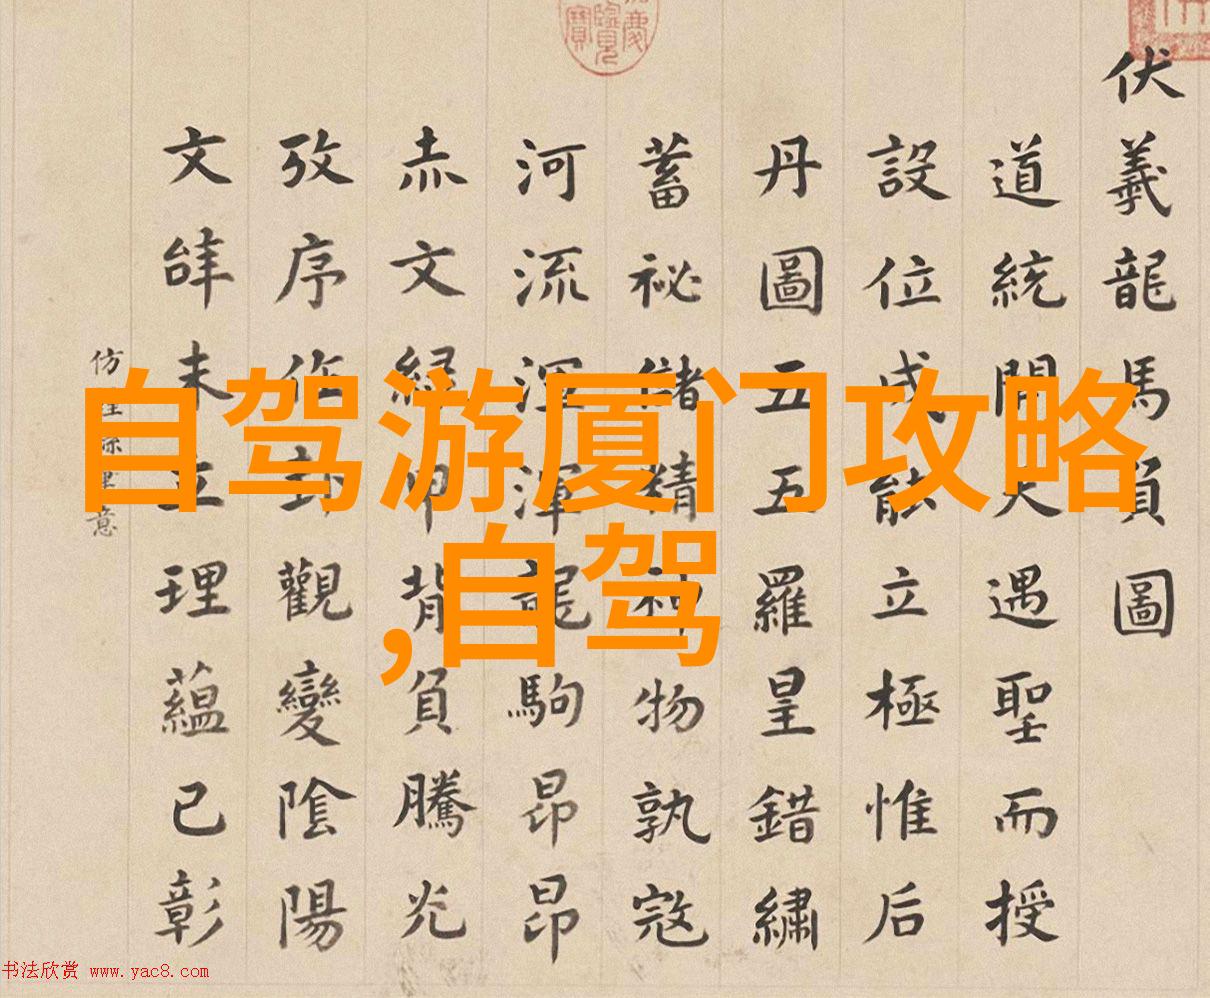 自驾游厦门攻略
,自驾
伏羲龍馬負圖
道統開天遇聖而授
設位成能立極惟后
丹圖五五羅皇錯繡
蓄祕儲精神物孰寇
河流渾渾龍駒昂昂
赤文綠甲背負騰光
攷序作卦觀變陰陽
文辞未立理蘊已彰
仿 意
书法欣赏 www.yac8.com